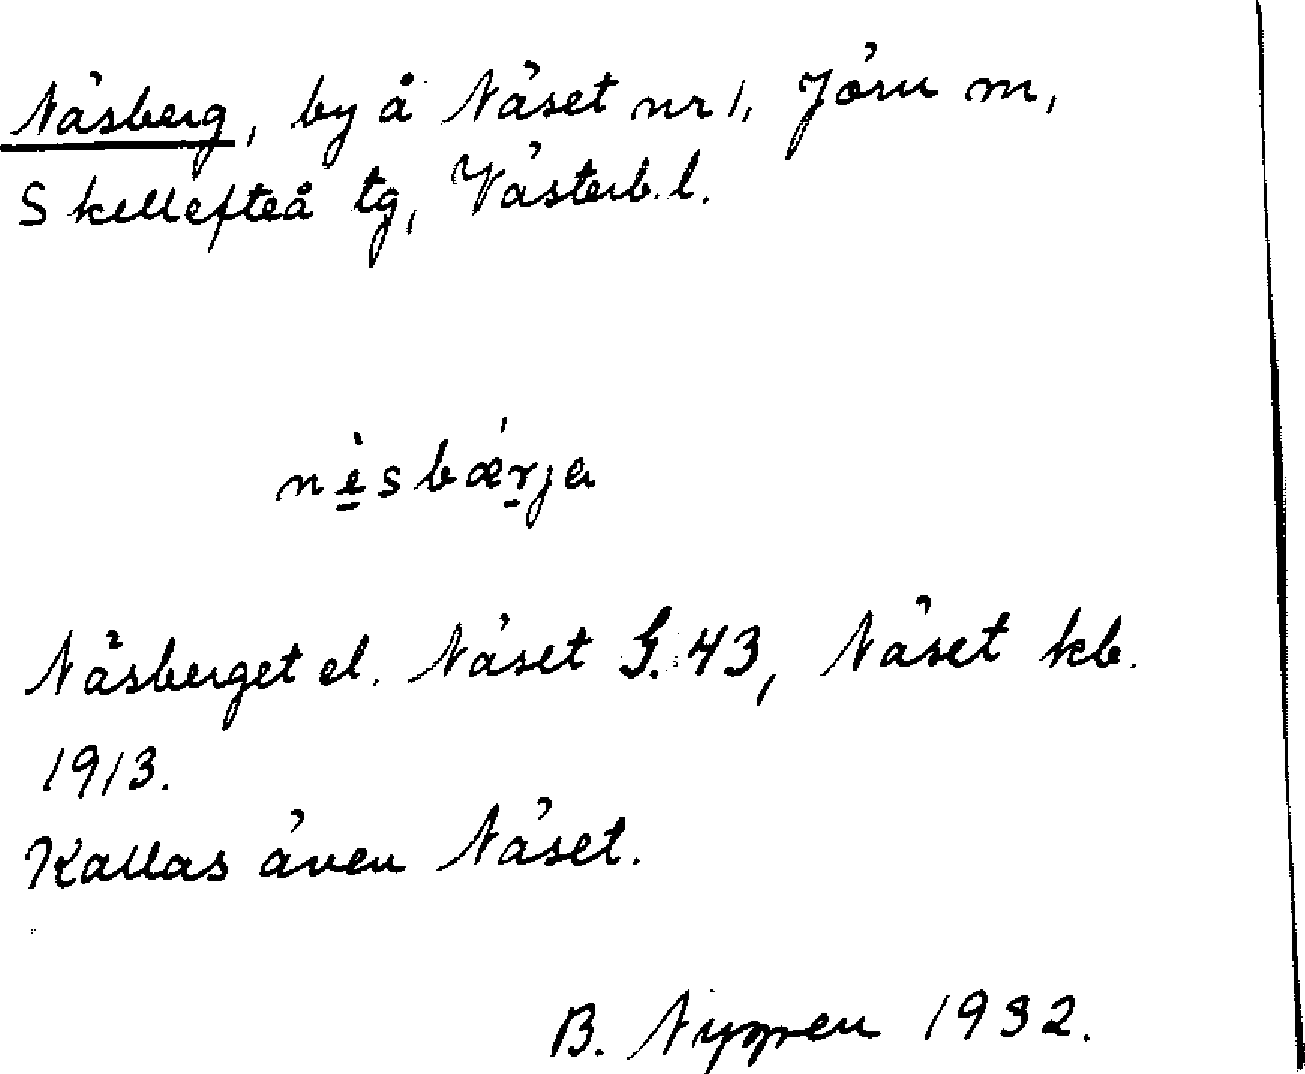 Näsberg, by å Näset nr 1, Jörn m,
Skellefteå tg, Västerb. l.
nèsbǽrja
Näsberget el. Näset G. 43, Näset kb.
1913.
Kallas även Näset.
B. 1932.